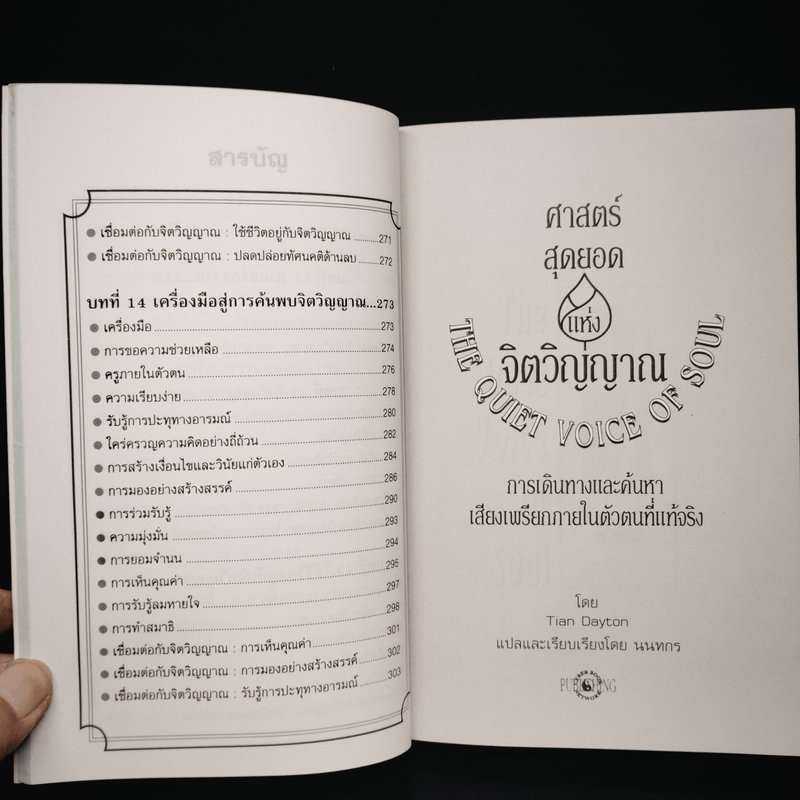 สารบัญ
เชื่อมต่อกับจิตวิญญาณ : ใช้ชีวิตอยู่กับจิตวิญญาณ ..........271
เชื่อมต่อกับจิตวิญญาณ : ปลดปล่อยทัศนคติด้านลบ ..........272
บทที่ 14 เครื่องมือสู่การค้นพบจิตวิญญาณ...273
เครื่องมือ ..........273
การขอความช่วยเหลือ ..........274
ครูภายในตัวตน ..........276
ความเรียบง่าย ..........278
รับรู้การปะทุทางอารมณ์ ..........280
ใคร่ครวญความคิดอย่างถี่ถ้วน ..........282
การสร้างเงื่อนไขและวินัยแก่ตัวเอง ..........284
การมองอย่างสร้างสรรค์ ..........286
การร่วมรับรู้ ..........290
ความมุ่งมั่น ..........293
การยอมจำนน ..........294
การเห็นคุณค่า ..........295
การรับรู้ลมหายใจ ..........297
การทำสมาธิ ..........298
เชื่อมต่อกับจิตวิญญาณ : การเห็นคุณค่า ..........301
เชื่อมต่อกับจิตวิญญาณ : การมองอย่างสร้างสรรค์ ..........302
เชื่อมต่อกับจิตวิญญาณ : รับรู้การปะทุทางอารมณ์ ..........303
ศาสตร์
สุดยอด
แห่ง
จิตวิญญาณ
THE QUIET VOICE OF SOUL
การเดินทางและค้นหา
เสียงเพรียกภายในตัวตนที่แท้จริง
โดย
Tian Dayton
แปลและเรียบเรียงโดย นนทกร